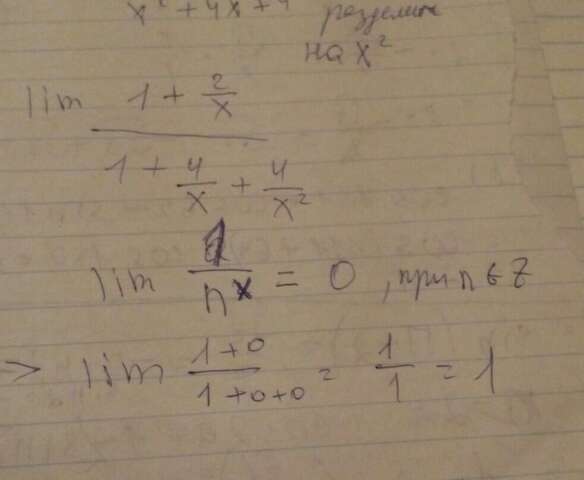 x² + 4x + 4 разделим
на x²
lim (1 + 2/x) / (1 + 4/x + 4/x²)
lim 1/n^x = 0, при n ∈ Z
> lim (1+0)/(1+0+0) = 1/1 = 1